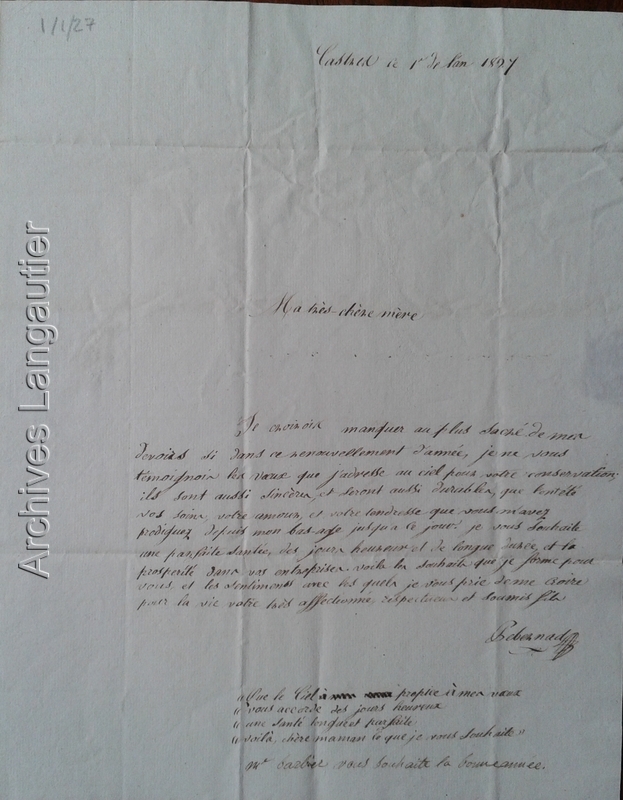 1/1/27
Castres ce 1r de l'an 1827
Archives Langautier
Ma très chère mère
Je croirois manquer au plus sacré de mes
devoirs si dans ce renouvellement d'année, je ne vous
témoignois les vœux que j'adresse au ciel pour votre conservation;
ils sont aussi sincères, et seront aussi durables, que l'ont été
vos soins, votre amour, et votre tendresse que vous m'avez
prodiguez depuis mon bas age jusqu'a ce jour: je vous souhaite
une parfaite santée, des jours heureux et de longue durée, et la
prosperité dans vos entreprises voila les souhaits que je forme pour
vous, et les sentiments avec les quels je vous prie de me croire
pour la vie votre très affectionné, respectueux et soumis fils
"Que le Ciel propice à mes vœux
"vous accorde des jours heureux
"une santé longue et parfaite
"voilà, chère maman ce que je vous souhaite"
Mr barbier vous souhaite la bonne année.